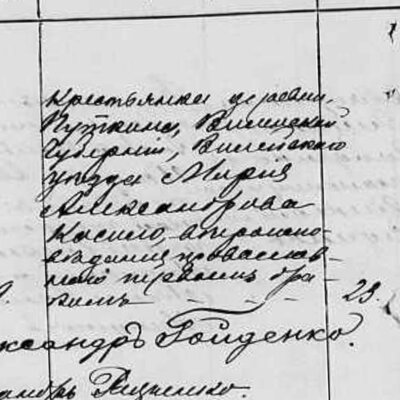 крестьянка деревни
Путкина, Виленской
Губернии, Вилейскаго
уезда Мария
Александрова
Касило, вероиспо-
ведания православ-
наго первымъ бра-
комъ 23.
ксандръ Гайденко.